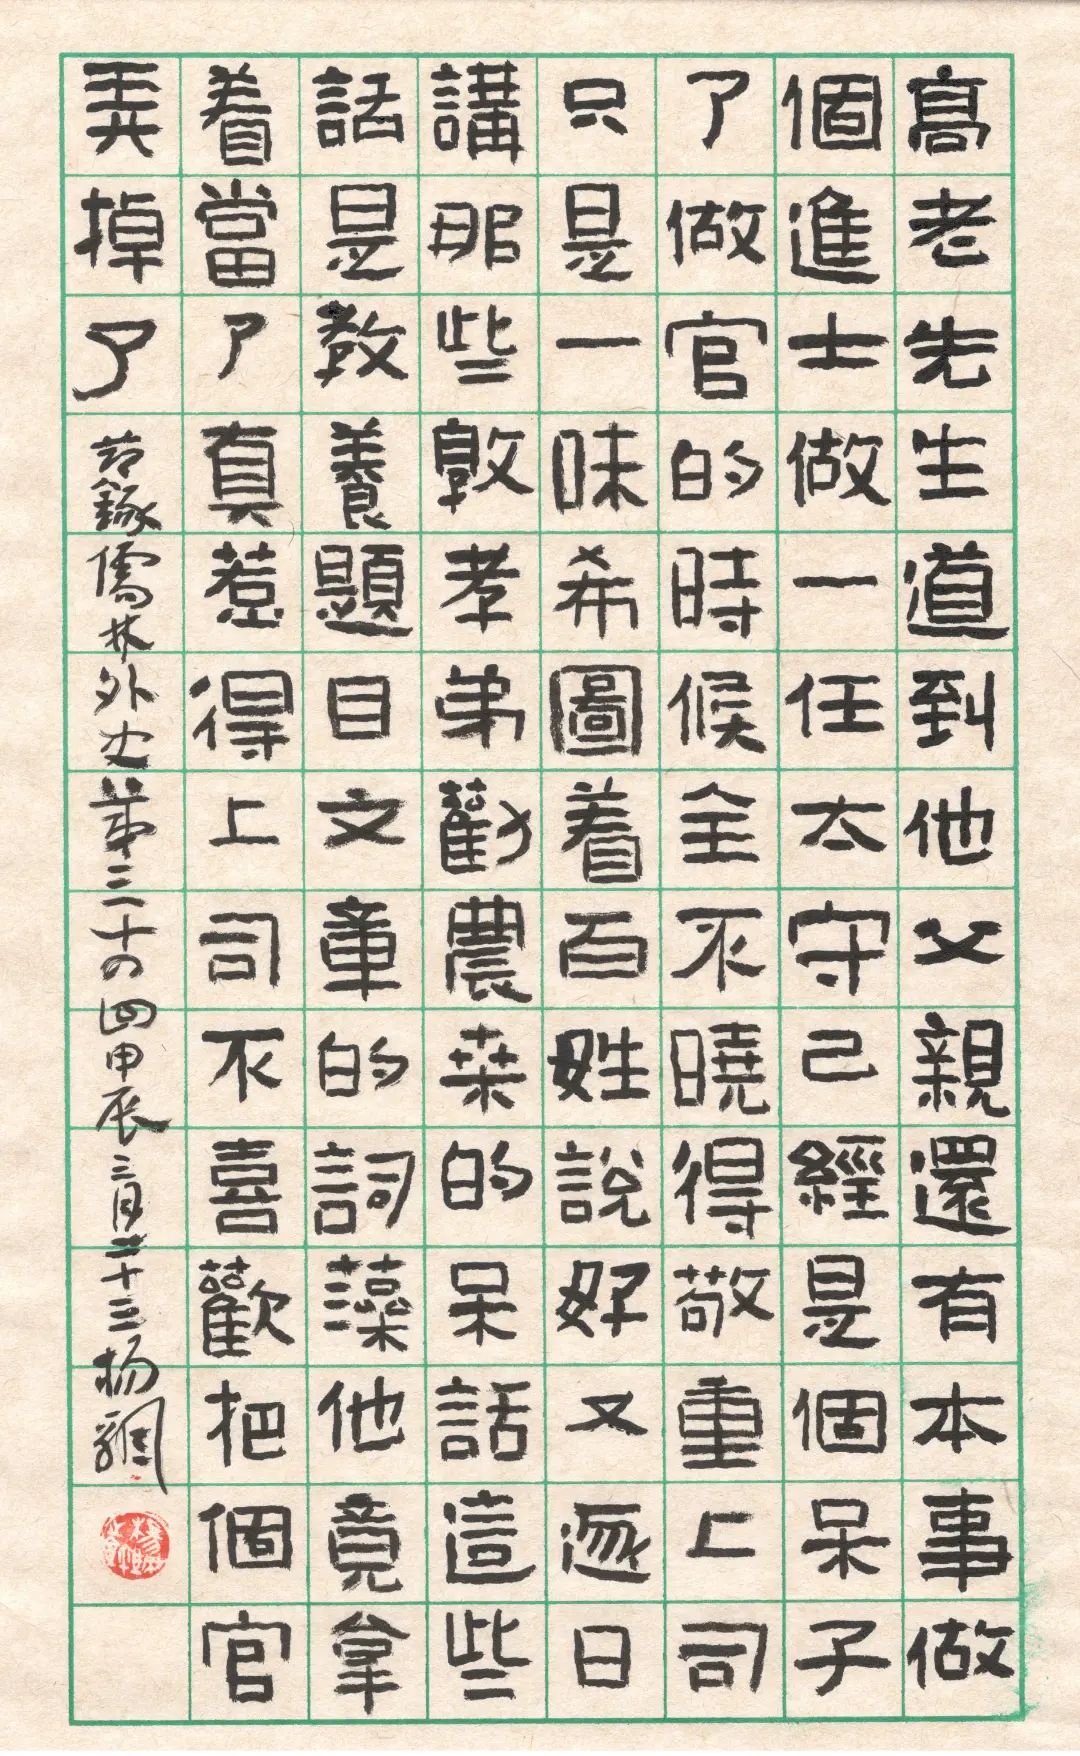 高老先生道到他父親還有本事做
個進士做一任太守已經是個呆子
了做官的時候全不曉得敬重上司
只是一味希圖着百姓說好又逐日
講那些敦孝弟勸農桑的呆話這些
話是教養題目文章的詞藻他竟拿
着當了真惹得上司不喜歡把個官
弄掉了 節錄儒林外史第三十四回甲辰三月二十三杨